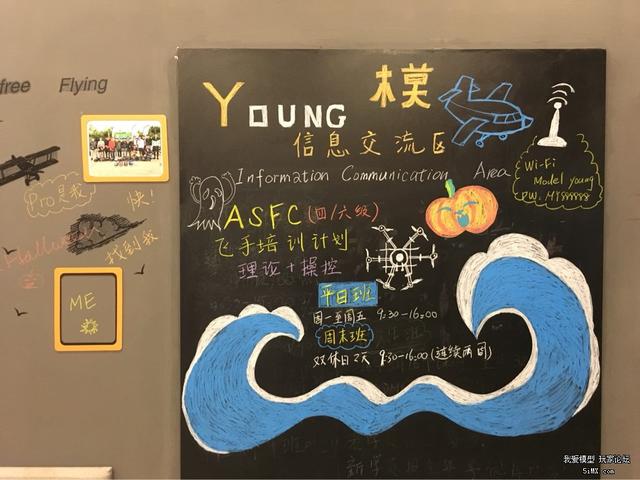 free Flying
Young 模
信息交流区
Information Communication Area
Wi-Fi
Model young
PW. MY888888
ASFC (四/六级)
飞手培训计划
理论+操控
平日班
周一至周五 9:30-16:00
周末班
双休日2天 9:30-16:00 (连续两周)
Pro是我
快!
找到我
ME
我爱模型 玩家论坛
5iMX.com